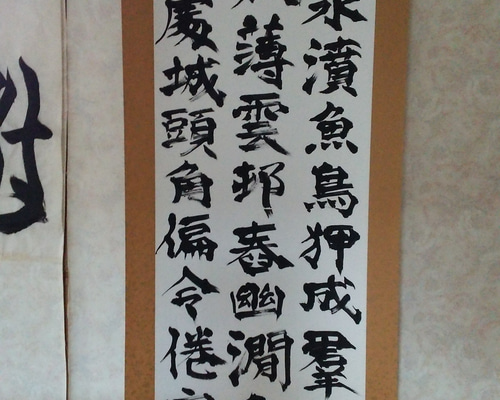 濆魚鳥狎成羣
薄雲邨春幽澗
處城頭角偏令倦